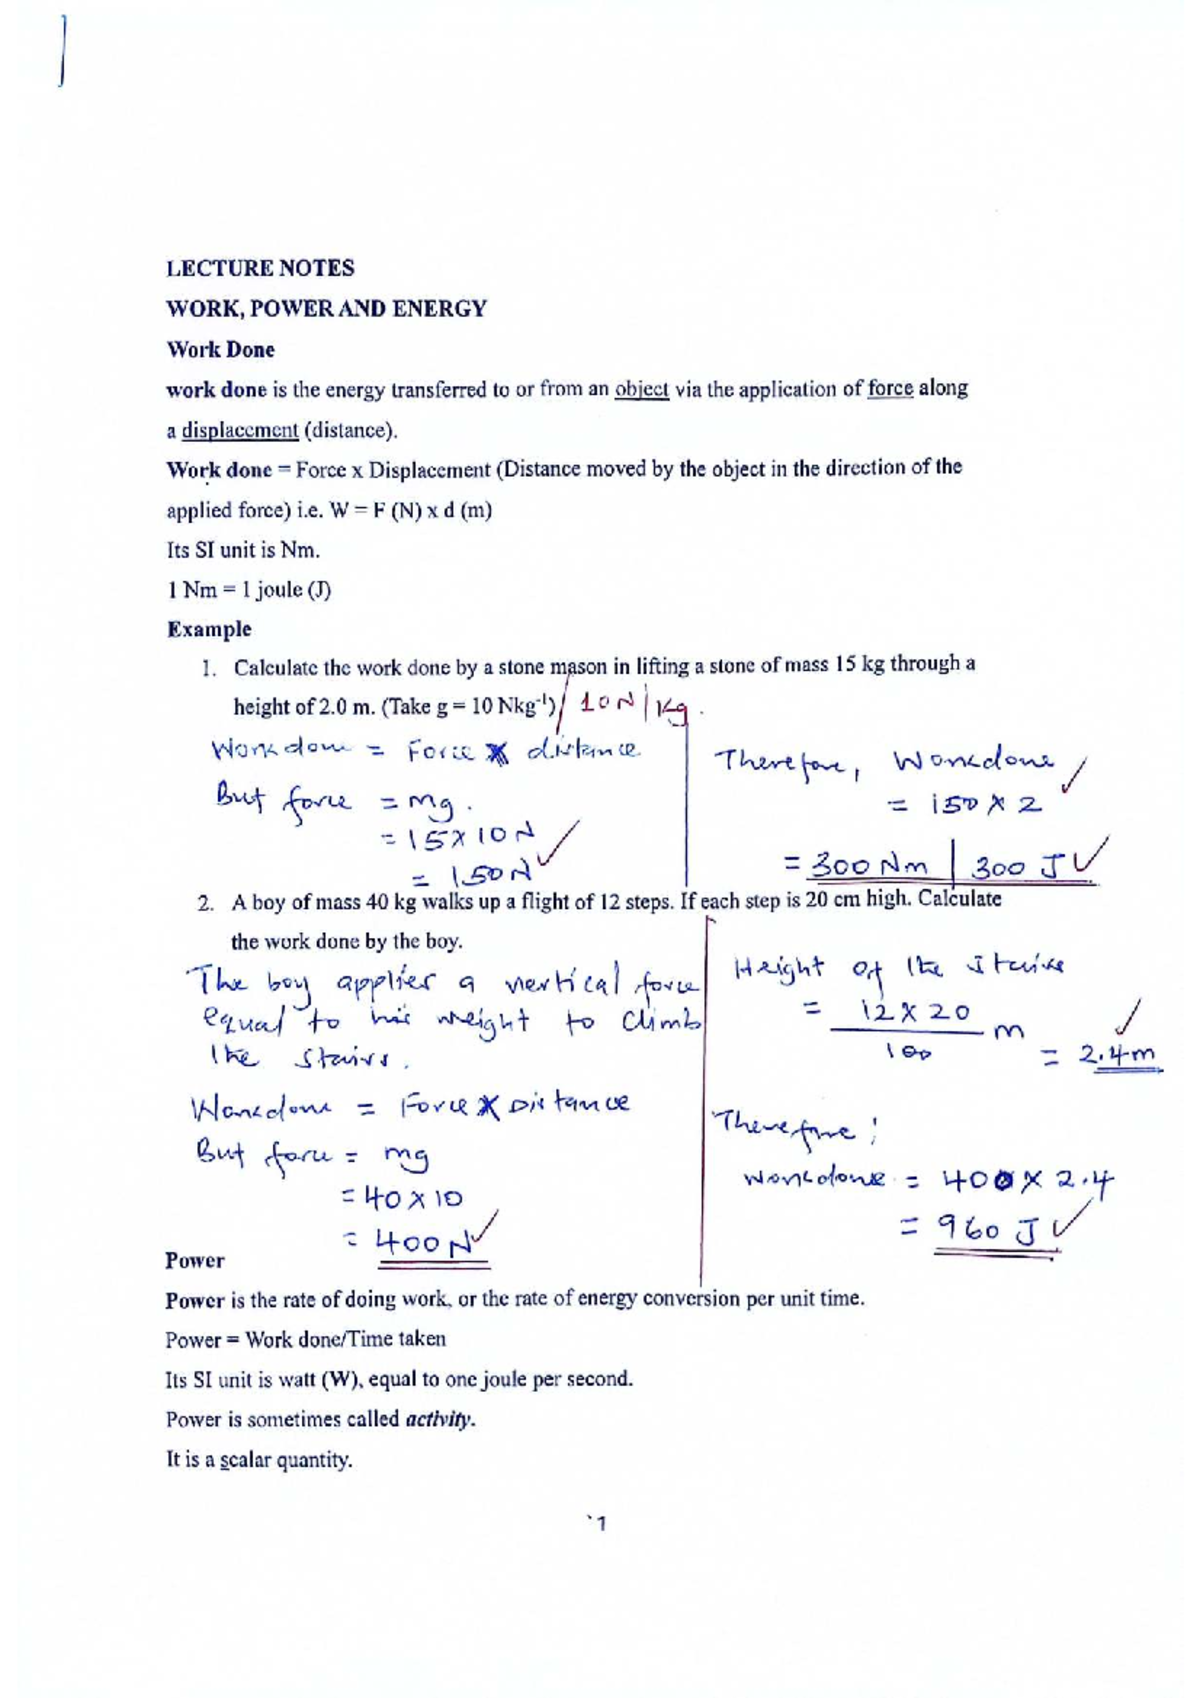 LECTURE NOTES
WORK, POWER AND ENERGY
Work Done
work done is the energy transferred to or from an object via the application of force along
a displacement (distance).
Work done = Force x Displacement (Distance moved by the object in the direction of the
applied force) i.e. W = F (N) x d (m)
Its SI unit is Nm.
1 Nm = 1 joule (J)
Example
1. Calculate the work done by a stone mason in lifting a stone of mass 15 kg through a
height of 2.0 m. (Take g = 10 Nkg⁻¹) / 10N/Kg.
Workdone = Force X distance
But force = mg.
= 15 X 10 N
= 150N
Therefore, Workdone
= 150 X 2
= 300 Nm | 300 J
2. A boy of mass 40 kg walks up a flight of 12 steps. If each step is 20 cm high. Calculate
the work done by the boy.
The boy applies a vertical force
equal to his weight to climb
the stairs.
Workdone = Force X Distance
But force = mg
= 40 X 10
= 400N
Height of the stairs
= 12 X 20
100
m
= 2.4m
Therefore;
workdone = 400 X 2.4
= 960 J
Power
Power is the rate of doing work, or the rate of energy conversion per unit time.
Power = Work done/Time taken
Its SI unit is watt (W), equal to one joule per second.
Power is sometimes called activity.
It is a scalar quantity.
1